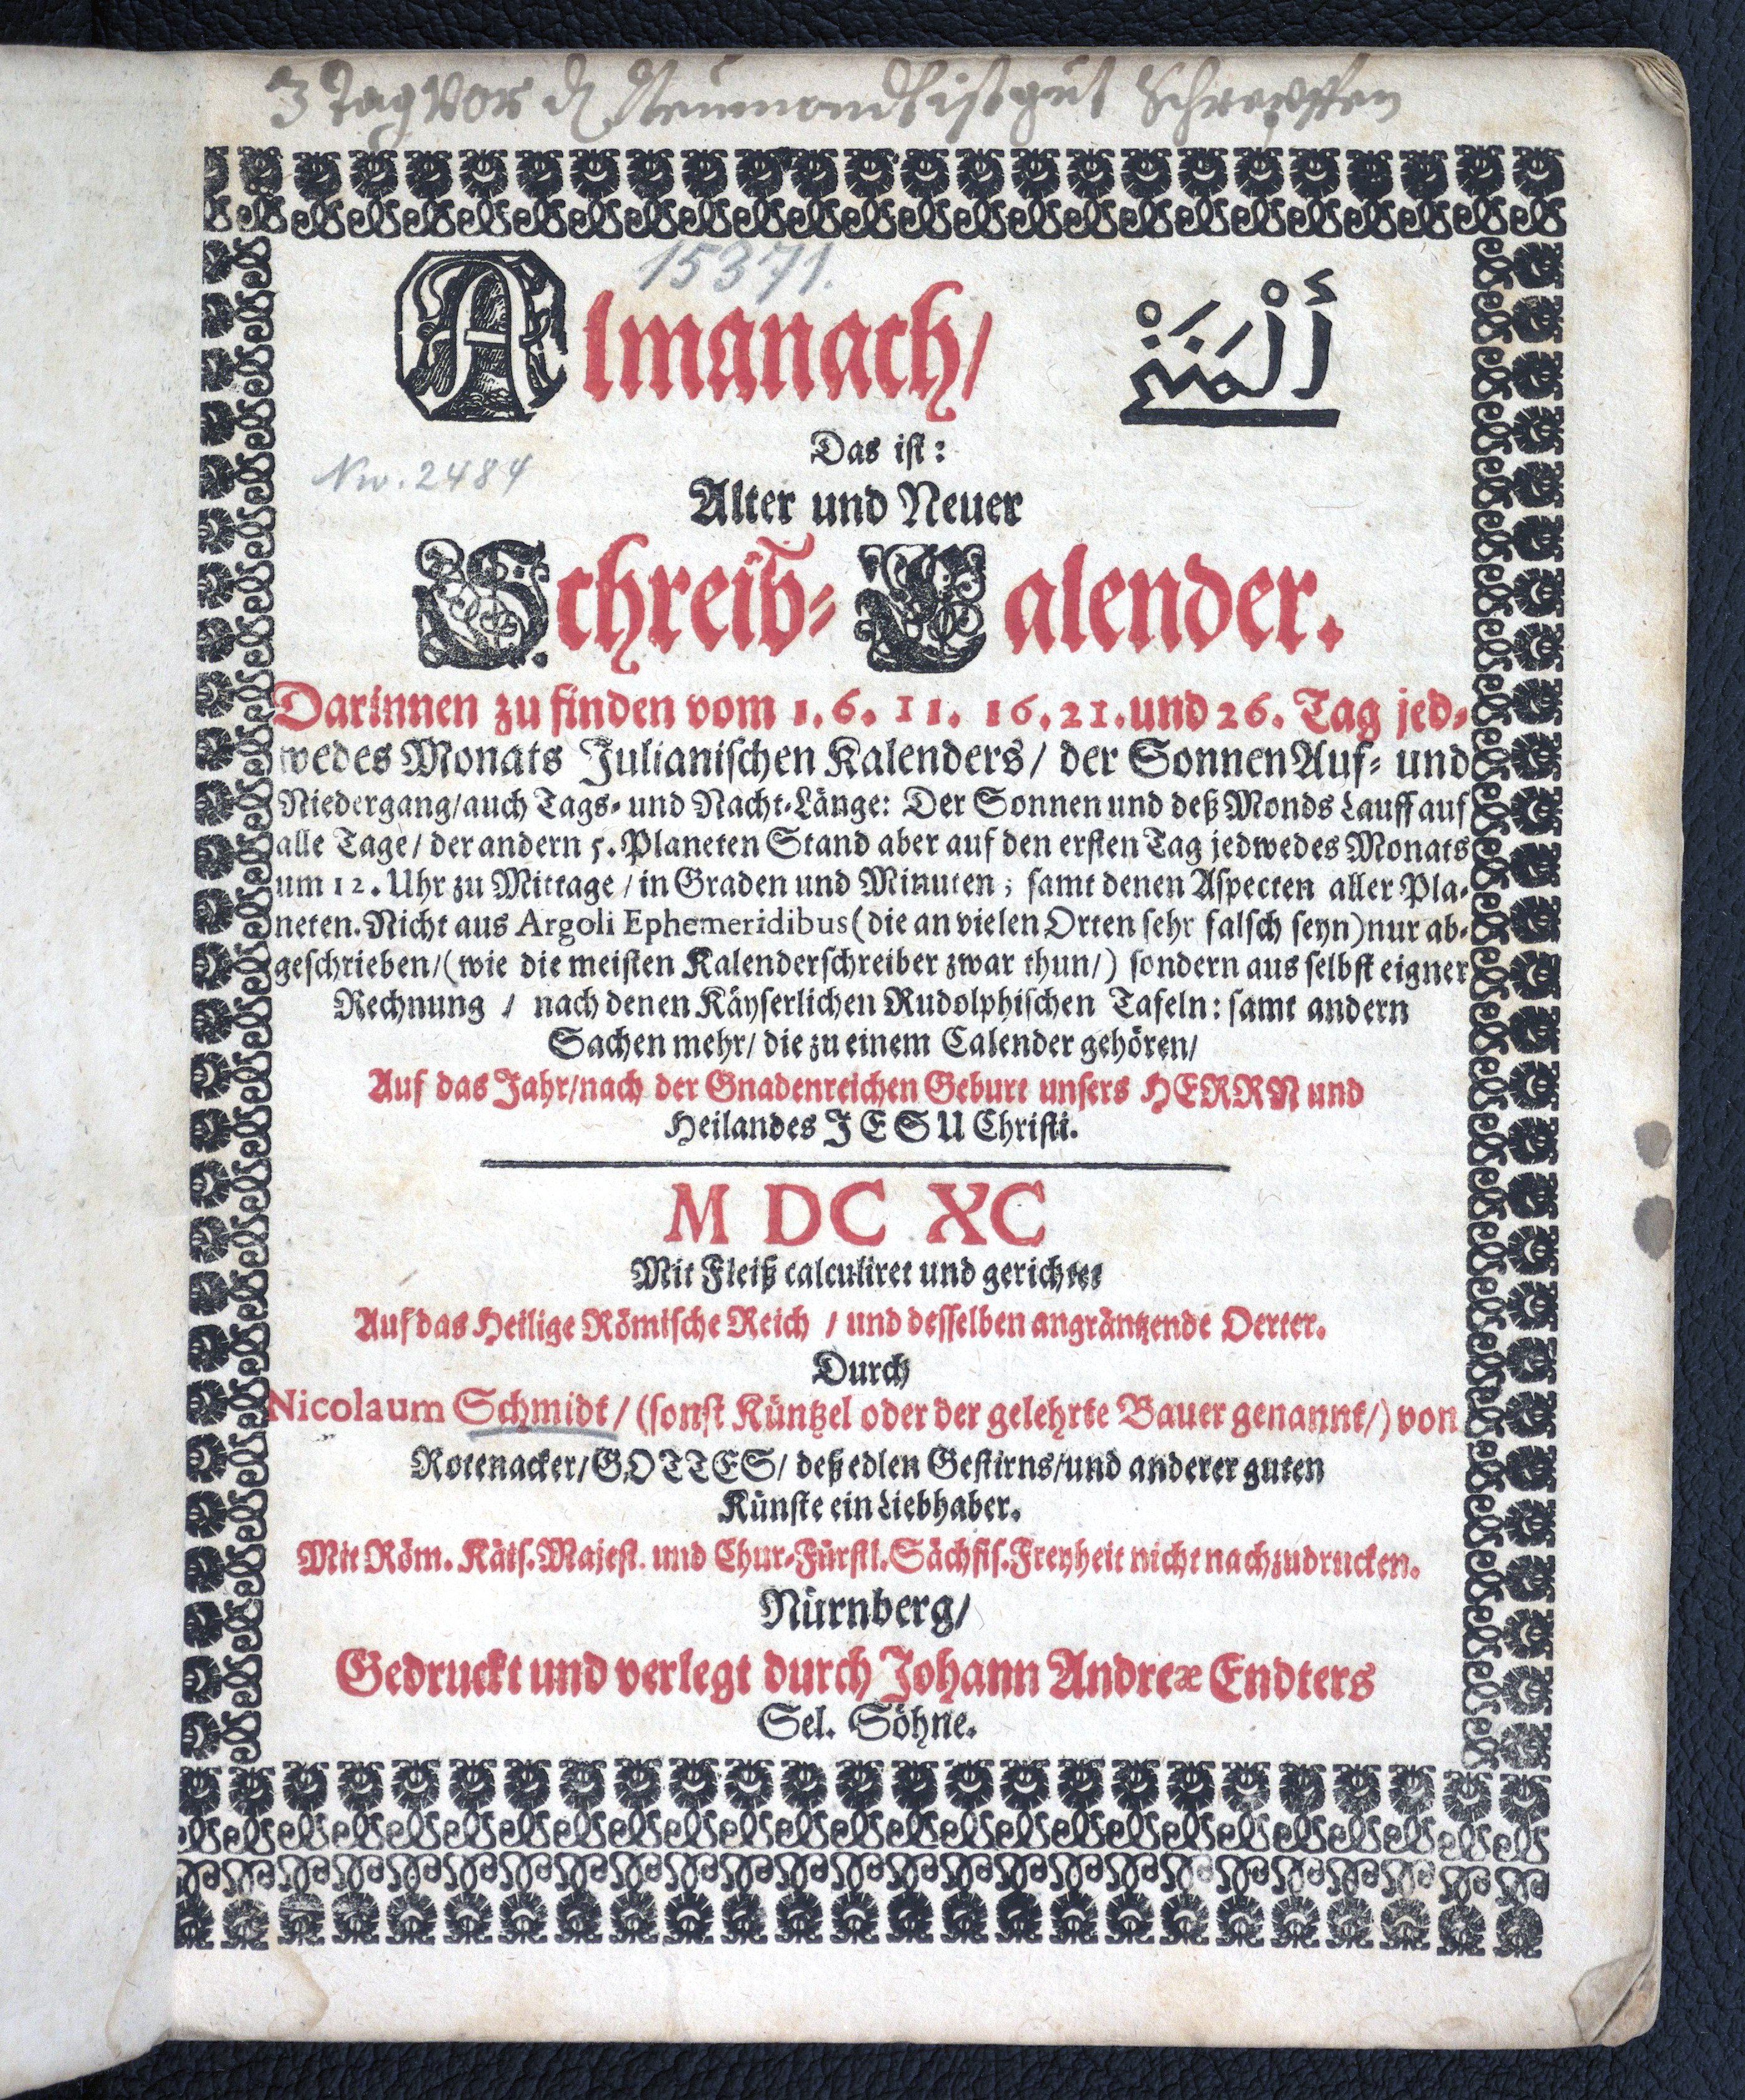 3 Tag vor d Neumondt ist gut Schrepffen
15371.
Almanach/ أَلْمَنَخْ
Das ist:
Nw. 2484
Alter und Neuer
Schreib-Calender.
Darinnen zu finden vom 1. 6. 11. 16. 21. und 26. Tag jed-
wedes Monats Julianischen Kalenders/ der Sonnen Auf- und
Niedergang/auch Tags- und Nacht-Länge: Der Sonnen und deß Monds Lauff auf
alle Tage/ der andern 5. Planeten Stand aber auf den ersten Tag jedwedes Monats
um 12. Uhr zu Mittage/in Graden und Minuten; samt denen Aspecten aller Pla-
neten. Nicht aus Argoli Ephemeridibus (die an vielen Orten sehr falsch seyn) nur ab-
geschrieben/(wie die meisten Kalenderschreiber zwar thun/) sondern aus selbst eigner
Rechnung / nach denen Käyserlichen Rudolphischen Tafeln: samt andern
Sachen mehr/ die zu einem Calender gehören/
Auf das Jahr/nach der Gnadenreichen Geburt unsers HERRN und
Heilandes JESU Christi.
M DC XC
Mit Fleiß calculiret und gerichtet
Auf das Heilige Römische Reich / und desselben angräntzende Oerter.
Durch
Nicolaum Schmidt/ (sonst Küntzel oder der gelehrte Bauer genannt/) von
Rotenacker/GOTTES/ deß edlen Gestirns/und anderer guten
Künste ein Liebhaber.
Mit Röm. Käis. Majest. und Chur-Fürstl. Sächsis. Freyheit nicht nachzudrucken.
Nürnberg/
Gedruckt und verlegt durch Johann Andreæ Endters
Sel. Söhne.